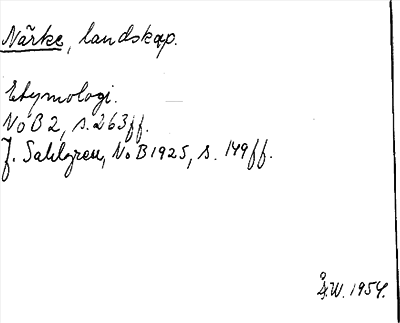 Närke, landskap.
Etymologi.
NoB 2, s. 263ff.
J. Sahlgren, NoB 1925, s. 149ff.
Å.W. 1954.